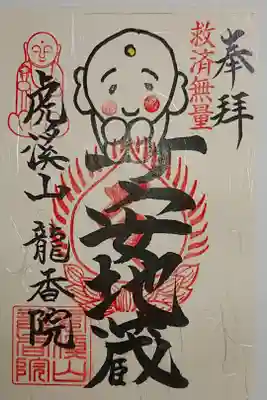 奉拝
救済無量
子安地蔵
虎渓山 龍香院